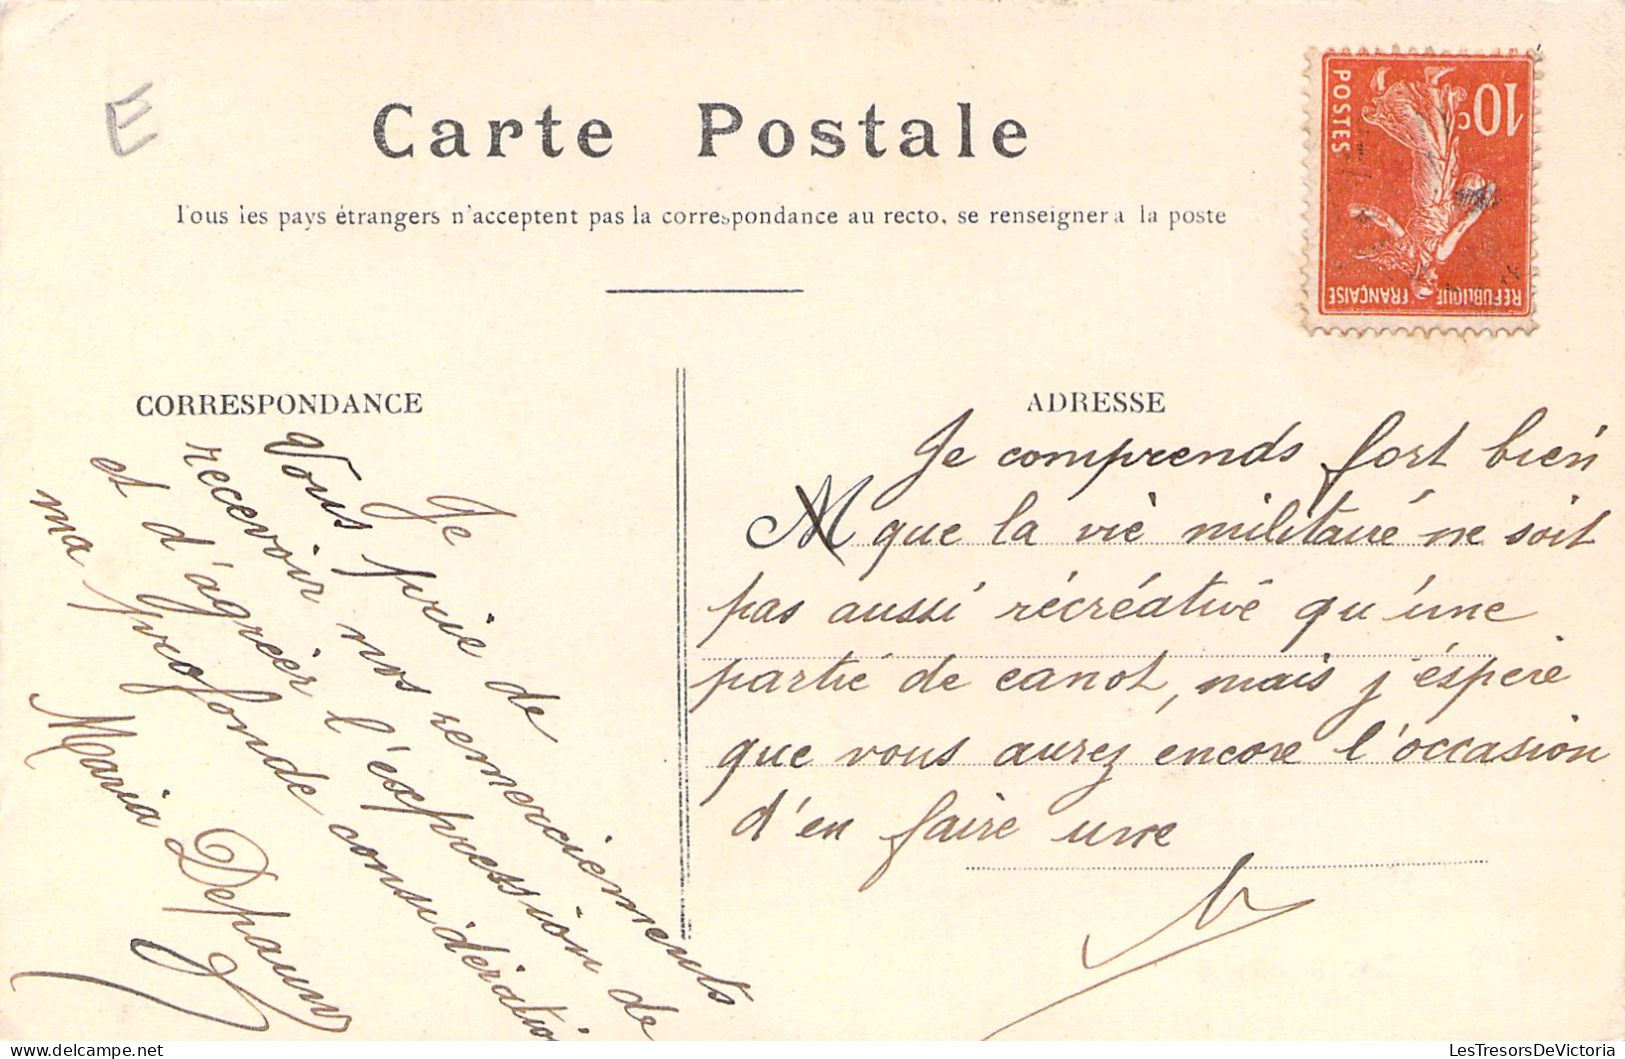 E
Carte Postale
Tous les pays étrangers n'acceptent pas la correspondance au recto, se renseigner a la poste
10c
POSTES
REPUBLIQUE FRANÇAISE
CORRESPONDANCE
Je
Vous prie de
recevoir nos remerciements
et d'agréer l'expression de
ma profonde considération
Maria
ADRESSE
Je comprends fort bien
M que la vie militaire ne soit
pas aussi récréative qu'une
partie de canot, mais j'éspère
que vous aurez encore l'occasion
d'en faire une
LesTresorsDeVictoria